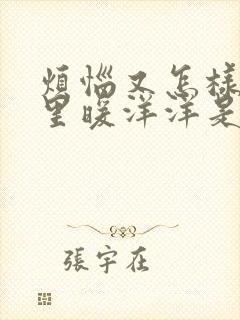 煩惱又怎樣
里暖洋洋是
張宇在